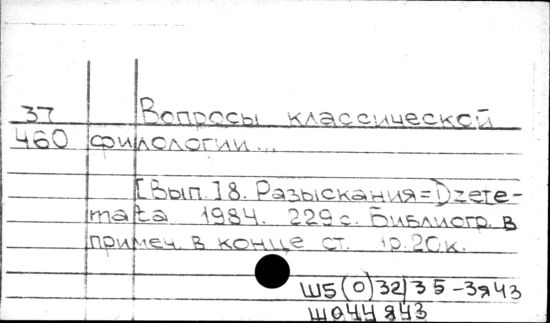 37 Вопросы классической
460 филологии...
[Вып.] 8. Разыскания=Dzete-
mata 1984. 229 с. Библиогр. в
примеч. в конце ст. 1р.20к.
Ш5(0)32/35-3я43
Ш044я43